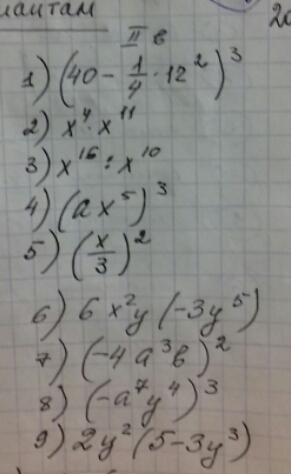 иантам 20
II в
1) (40 - 1/4 · 12²)³
2) x⁴ · x¹¹
3) x¹⁶ : x¹⁰
4) (ax⁵)³
5) (x/3)²
6) 6x²y (-3y⁵)
7) (-4a³b)²
8) (-a⁷y⁴)³
9) 2y² (5-3y³)